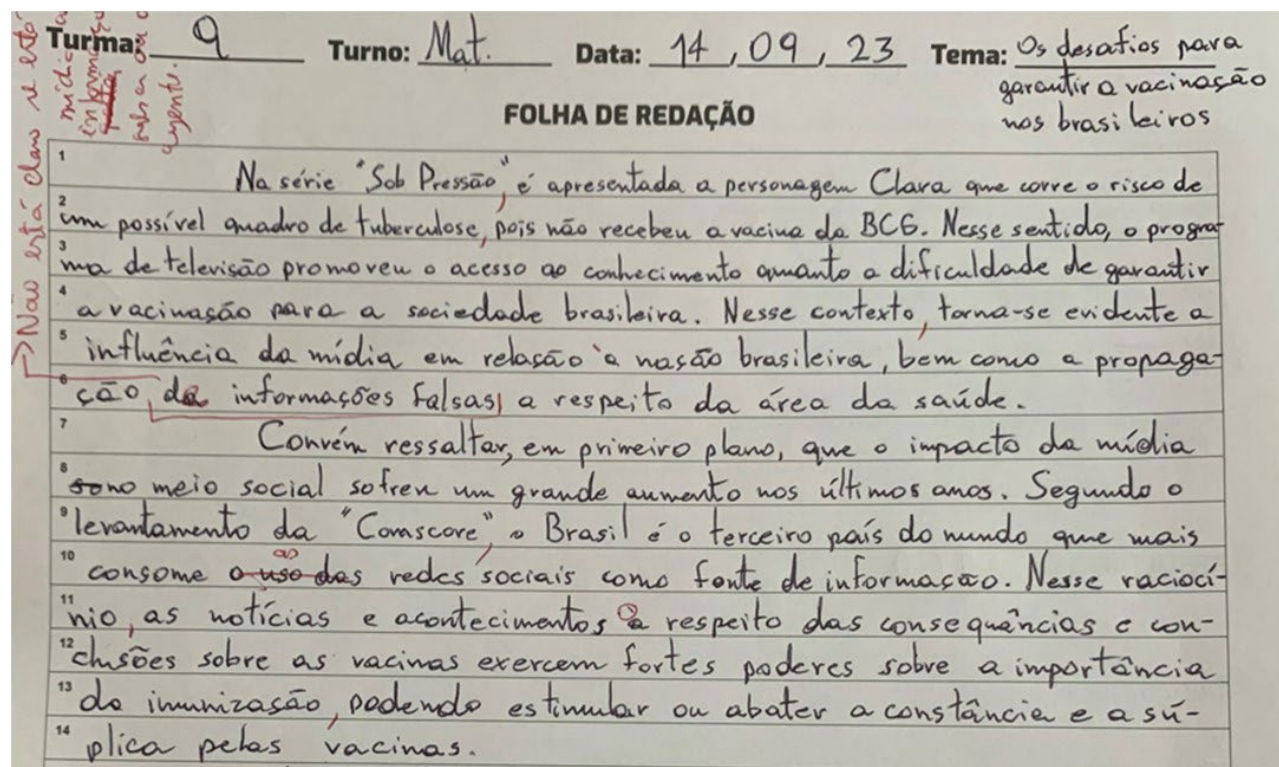 Turma: 9 Turno: Mat. Data: 14, 09, 23 Tema: Os desafios para
garantir a vacinação
nos brasileiros
FOLHA DE REDAÇÃO
→Não está claro se esta
mídia
urgente.
1 Na série "Sob Pressão", é apresentada a personagem Clara que corre o risco de
2 um possível quadro de tuberculose, pois não recebeu a vacina da BCG. Nesse sentido, o progra-
3 ma de televisão promoveu o acesso ao conhecimento quanto a dificuldade de garantir
4 a vacinação para a sociedade brasileira. Nesse contexto, torna-se evidente a
5 influência da mídia em relação à nação brasileira, bem como a propaga-
6 ção, de informações falsas, a respeito da área da saúde.
7 Convém ressaltar, em primeiro plano, que o impacto da mídia
8 no meio social sofreu um grande aumento nos últimos anos. Segundo o
9 levantamento da "Comscore", o Brasil é o terceiro país do mundo que mais
as
10 consome o uso das redes sociais como fonte de informação. Nesse raciocí-
11 nio, as notícias e acontecimentos a respeito das consequências e con-
12 clusões sobre as vacinas exercem fortes poderes sobre a importância
13 da imunização, podendo estimular ou abater a constância e a sú-
14 plica pelas vacinas.